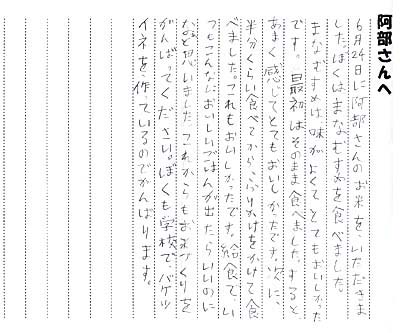 阿部さんへ
6月24日に阿部さんのお米を、いただきま
した。ぼくはまなむすめを食べました。
まなむすめは味がよくて、とてもおいしかった
です。最初はそのまま食べました。すると、
あまく感じてとてもおいしかったです。次に、
半分くらい食べてから、ふりかけをかけて食
べました。これもおいしかったです。給食で、い
つもこんなにおいしいごはんが出たらいいのに
なと思いました。これからもお米づくりを
がんばってください。ぼくも学校で、バケツ
イネを、作っているのでがんばります。